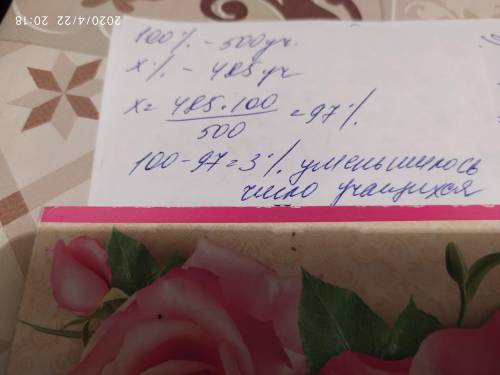 2020/4/22 20:18
100% - 500 уч.
х% - 485 уч
х= 485·100 = 97%
500
100-97=3% уменьшилось
число учащихся